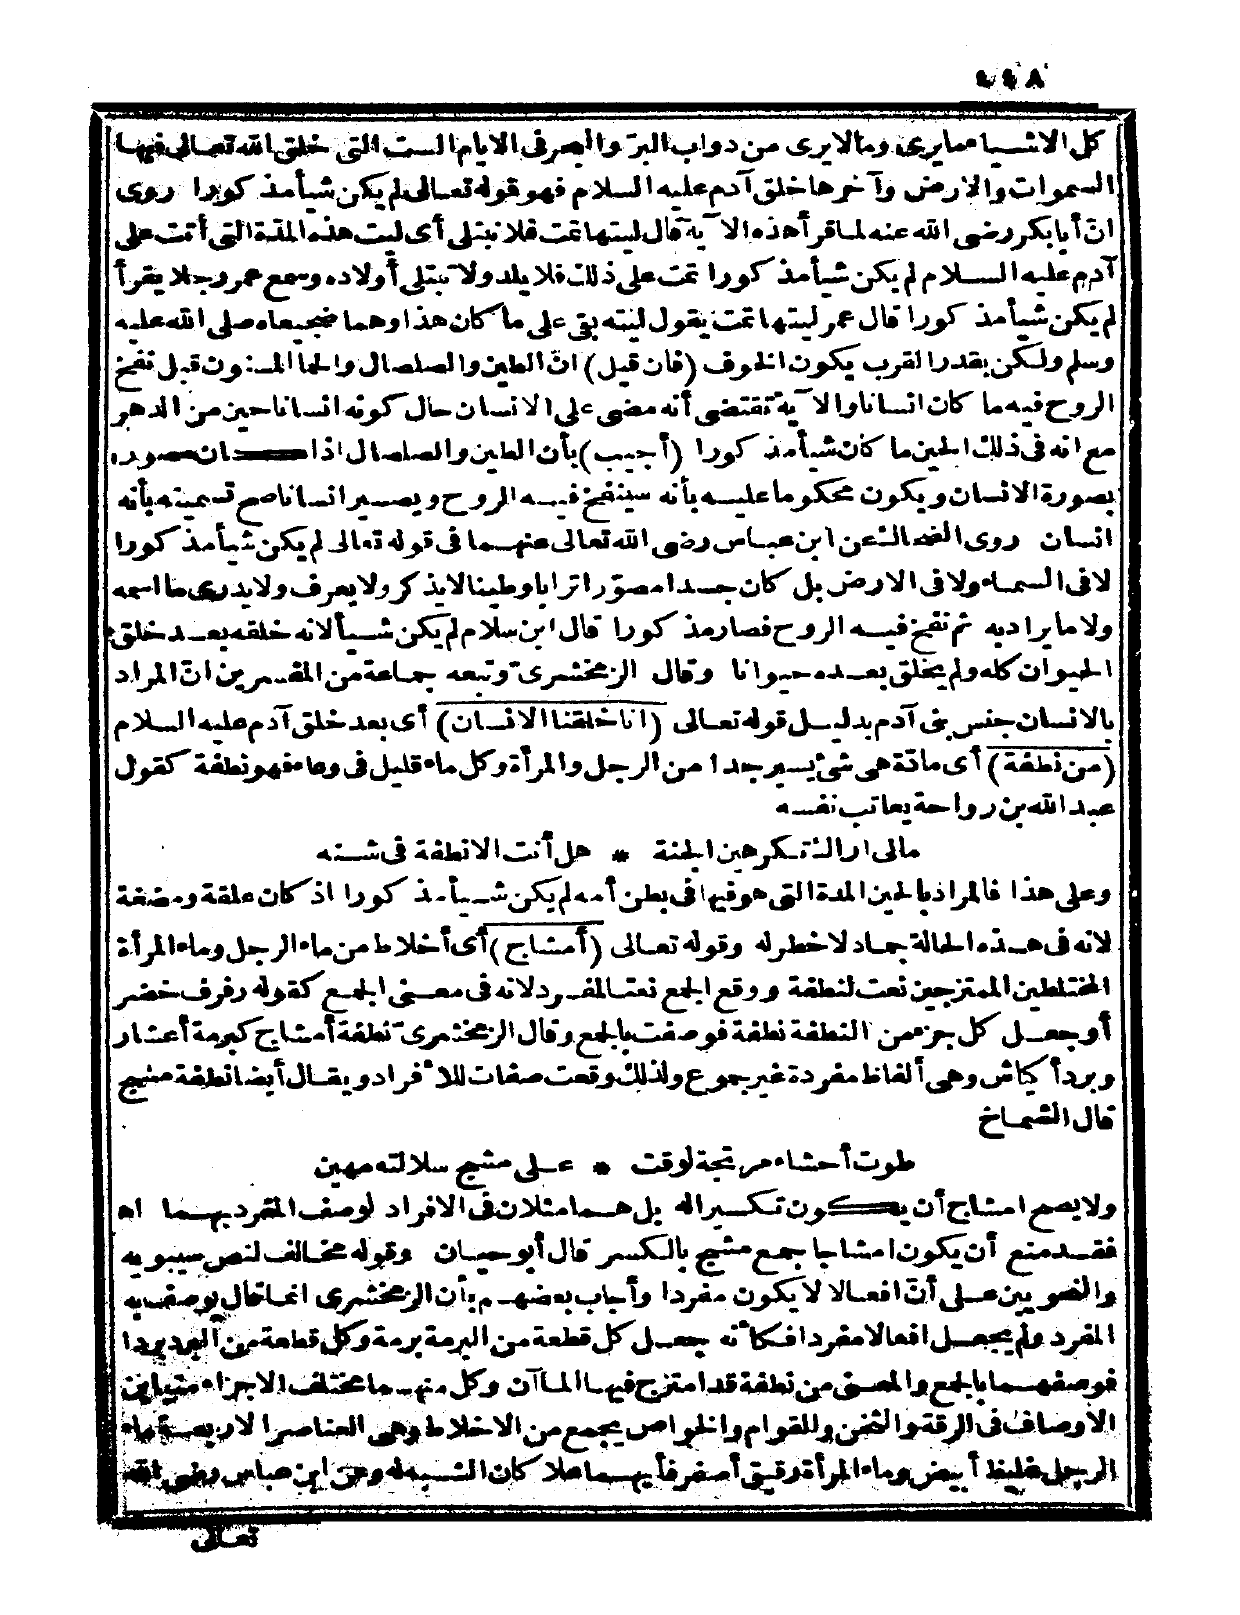 ٤٤٨
كل الاشياء مما يرى وما لا يرى من دواب البرّ والبحر فى الايام الست التى خلق الله تعالى فيها
السموات والارض وآخرها خلق آدم عليه السلام فهو قوله تعالى لم يكن شيأ مذكورا روى
انّ أبا بكر رضى الله عنه لما قرأ هذه الآية قال ليتها تمت فلا نبتلى أى ليت هذه المدّة التى أتت على
آدم عليه السلام لم يكن شيأ مذكورا تمت على ذلك فلا يلد ولا تبتلى أولاده وسمع عمر رجلا يقرأ
لم يكن شيأ مذكورا قال عمر ليتها تمت يقول ليته بقى على ما كان هذا وهما ضجيعاه صلى الله عليه
وسلم ولكن بقدر القرب يكون الخوف (فان قيل) انّ الطين والصلصال والحما المسنون قبل نفخ
الروح فيه ما كان انسانا والآية تقتضى أنه مضى على الانسان حال كونه انسانا حين من الدهر
مع انه فى ذلك الحين ما كان شيأ مذكورا (أجيب) بأن الطين والصلصال اذا كان مصورا
بصورة الانسان ويكون محكوما عليه بأنه سينفخ فيه الروح ويصير انسانا صح تسميته بأنه
انسان روى الضحاك عن ابن عباس رضى الله تعالى عنهما فى قوله تعالى لم يكن شيأ مذكورا
لا فى السماء ولا فى الارض بل كان جسدا مصوّرا ترابا وطينا لا يذكر ولا يعرف ولا يدرى ما اسمه
ولا ما يراد به ثم نفخ فيه الروح فصار مذكورا قال ابن سلام لم يكن شيأ لانه خلقه بعد خلق
الحيوان كله ولم يخلق بعده حيوانا وقال الزمخشرى وتبعه جماعة من المفسرين انّ المراد
بالانسان جنس بنى آدم بدليل قوله تعالى (انا خلقنا الانسان) أى بعد خلق آدم عليه السلام
(من نطفة) أى مادّة هى شئ يسير جدا من الرجل والمرأة وكل ماء قليل فى وعاء فهو نطفة كقول
عبد الله بن رواحة يعاتب نفسه
مالى اراك تكرهين الجنة * هل أنت الا نطفة فى شنه
وعلى هذا فالمراد بالحين المدة التى هو فيها فى بطن أمه لم يكن شيأ مذكورا اذ كان علقة ومضغة
لانه فى هذه الحالة جماد لا خطر له وقوله تعالى (أمشاج) أى أخلاط من ماء الرجل وماء المرأة
المختلطين الممتزجين نعت لنطفة ووقع الجمع نعتا لمفرد لانه فى معنى الجمع كقوله رفرف خضر
أو جعل كل جزء من النطفة نطفة فوصفت بالجمع وقال الزمخشرى نطفة أمشاج كبرمة أعشار
وبرد أكياش وهى ألفاظ مفردة غير جموع ولذلك وقعت صفات للأفراد ويقال أيضا نطفة مشج
قال الشماخ
طوت أحشاء مرتجة لوقت * على مشج سلالته مهين
ولا يصح امشاج أن يكون تكسيرا له بل هما مثلان فى الافراد لوصف المفرد بهما اه
فقد منع أن يكون امشاجا جمع مشج بالكسر قال أبو حيان وقوله مخالف لنص سيبويه
والنحويين على أنّ افعالا لا يكون مفردا وأجاب بعضهم بأن الزمخشرى انما قال يوصف به
المفرد ولم يجعل افعالا مفردا فكأنه جعل كل قطعة من البرمة برمة وكل قطعة من البرد بردا
فوصفهما بالجمع والمعنى من نطفة قد امتزج فيها الماآن وكل منهما مختلف الاجزاء متباين
الاوصاف فى الرقة والثخن والقوام والخواص يجمع من الاخلاط وهى العناصر الاربعة ماء
الرجل غليظ أبيض وماء المرأة رقيق أصفر فأيهما علا كان الشبه له وعن ابن عباس رضى الله
تعالى